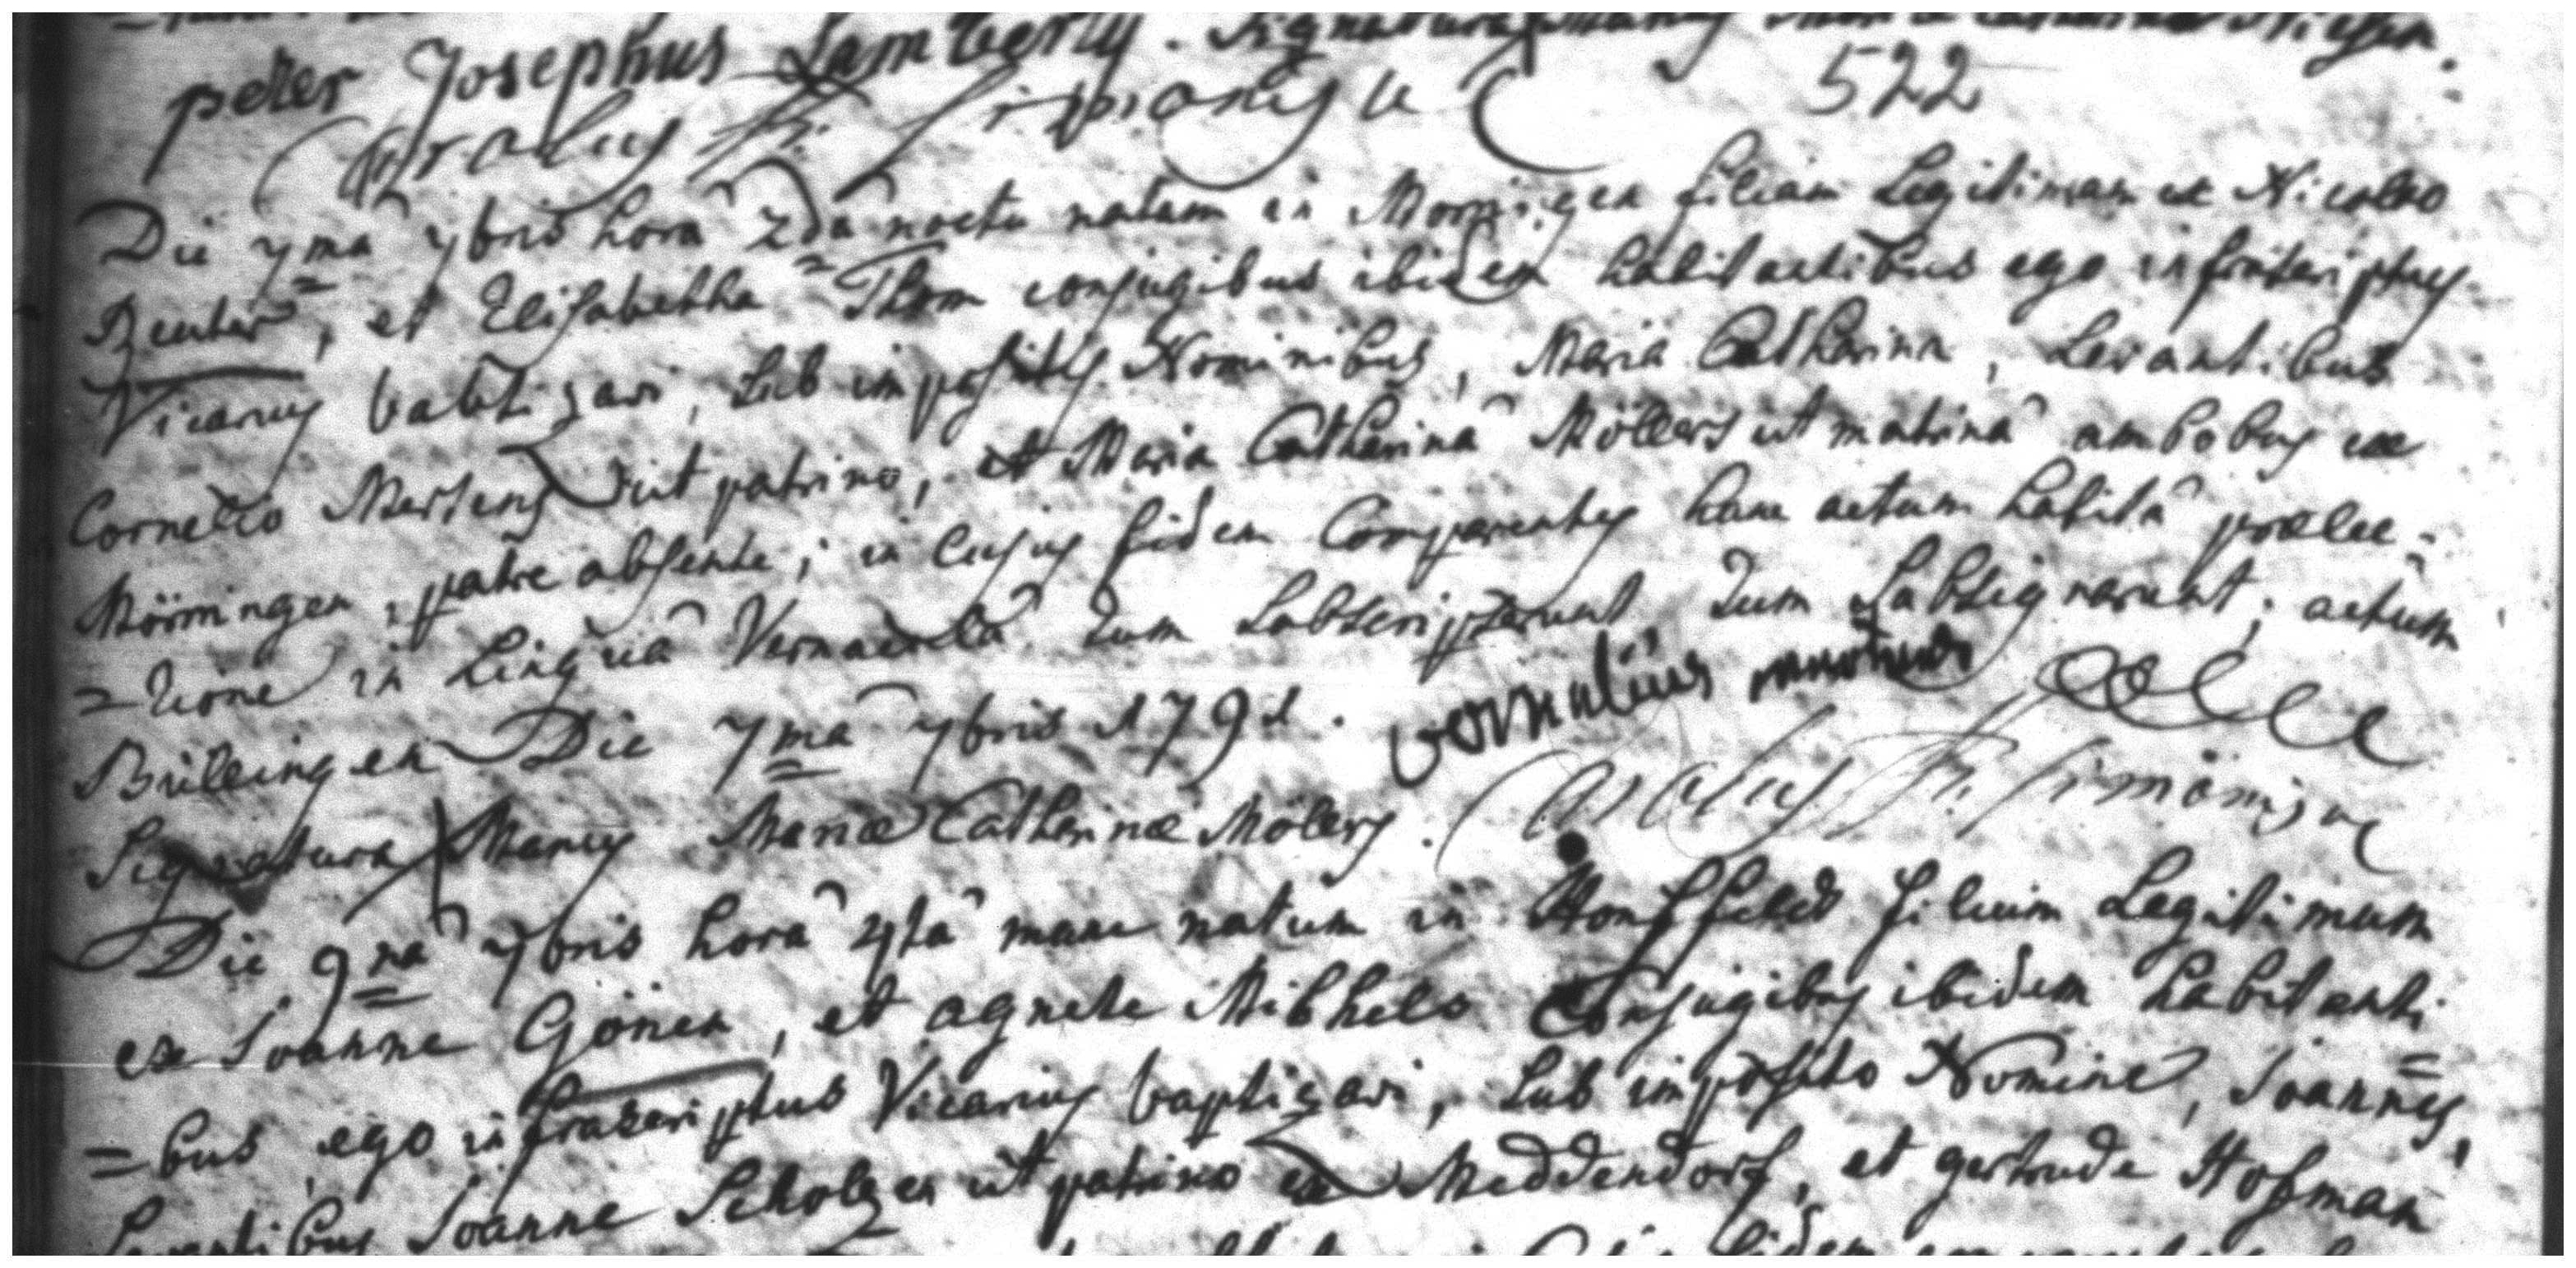 peter Josephus Lamberty. Signatura X Manus Mariæ Catharinæ
522
Die 7ma 7bris horâ 2dâ noctu natam in Morringen filiam Legitimam ex Nicolao
Reuter, et Elisabetha Thom conjugibus ibidem habitantibus ego infrascriptus
Vicarius babtizavi, sub impositis Nominibus, Maria Catharina, Levantibus
Cornelio Mertens ut patrino, et Maria Catherinâ Möllers ut matrinâ ambobus ex
Mörringen, patre absente; in cujus fidem Comparentes hunc actum habitâ prælec-
=tione in Linguâ Vernaculâ tum subscripserunt tum subsignarunt; actum
Bülleingen Die 7ma 7bris 1791. cornelius
Signatura X Manus Mariæ Catherinæ Mölers.
Die 9na 7bris horâ 4tâ mane natum in Honsfeld filium Legitimum
ex Joanne Gönen, et agnete Michels Conjugibus ibidem habitanti
=bus, ego infrascriptus Vicarius baptizavi, sub imposito Nomine, Joannes,
Levantibus Joanne Scholzen ut patrino ex Meddendorf, et gertrude Hofman